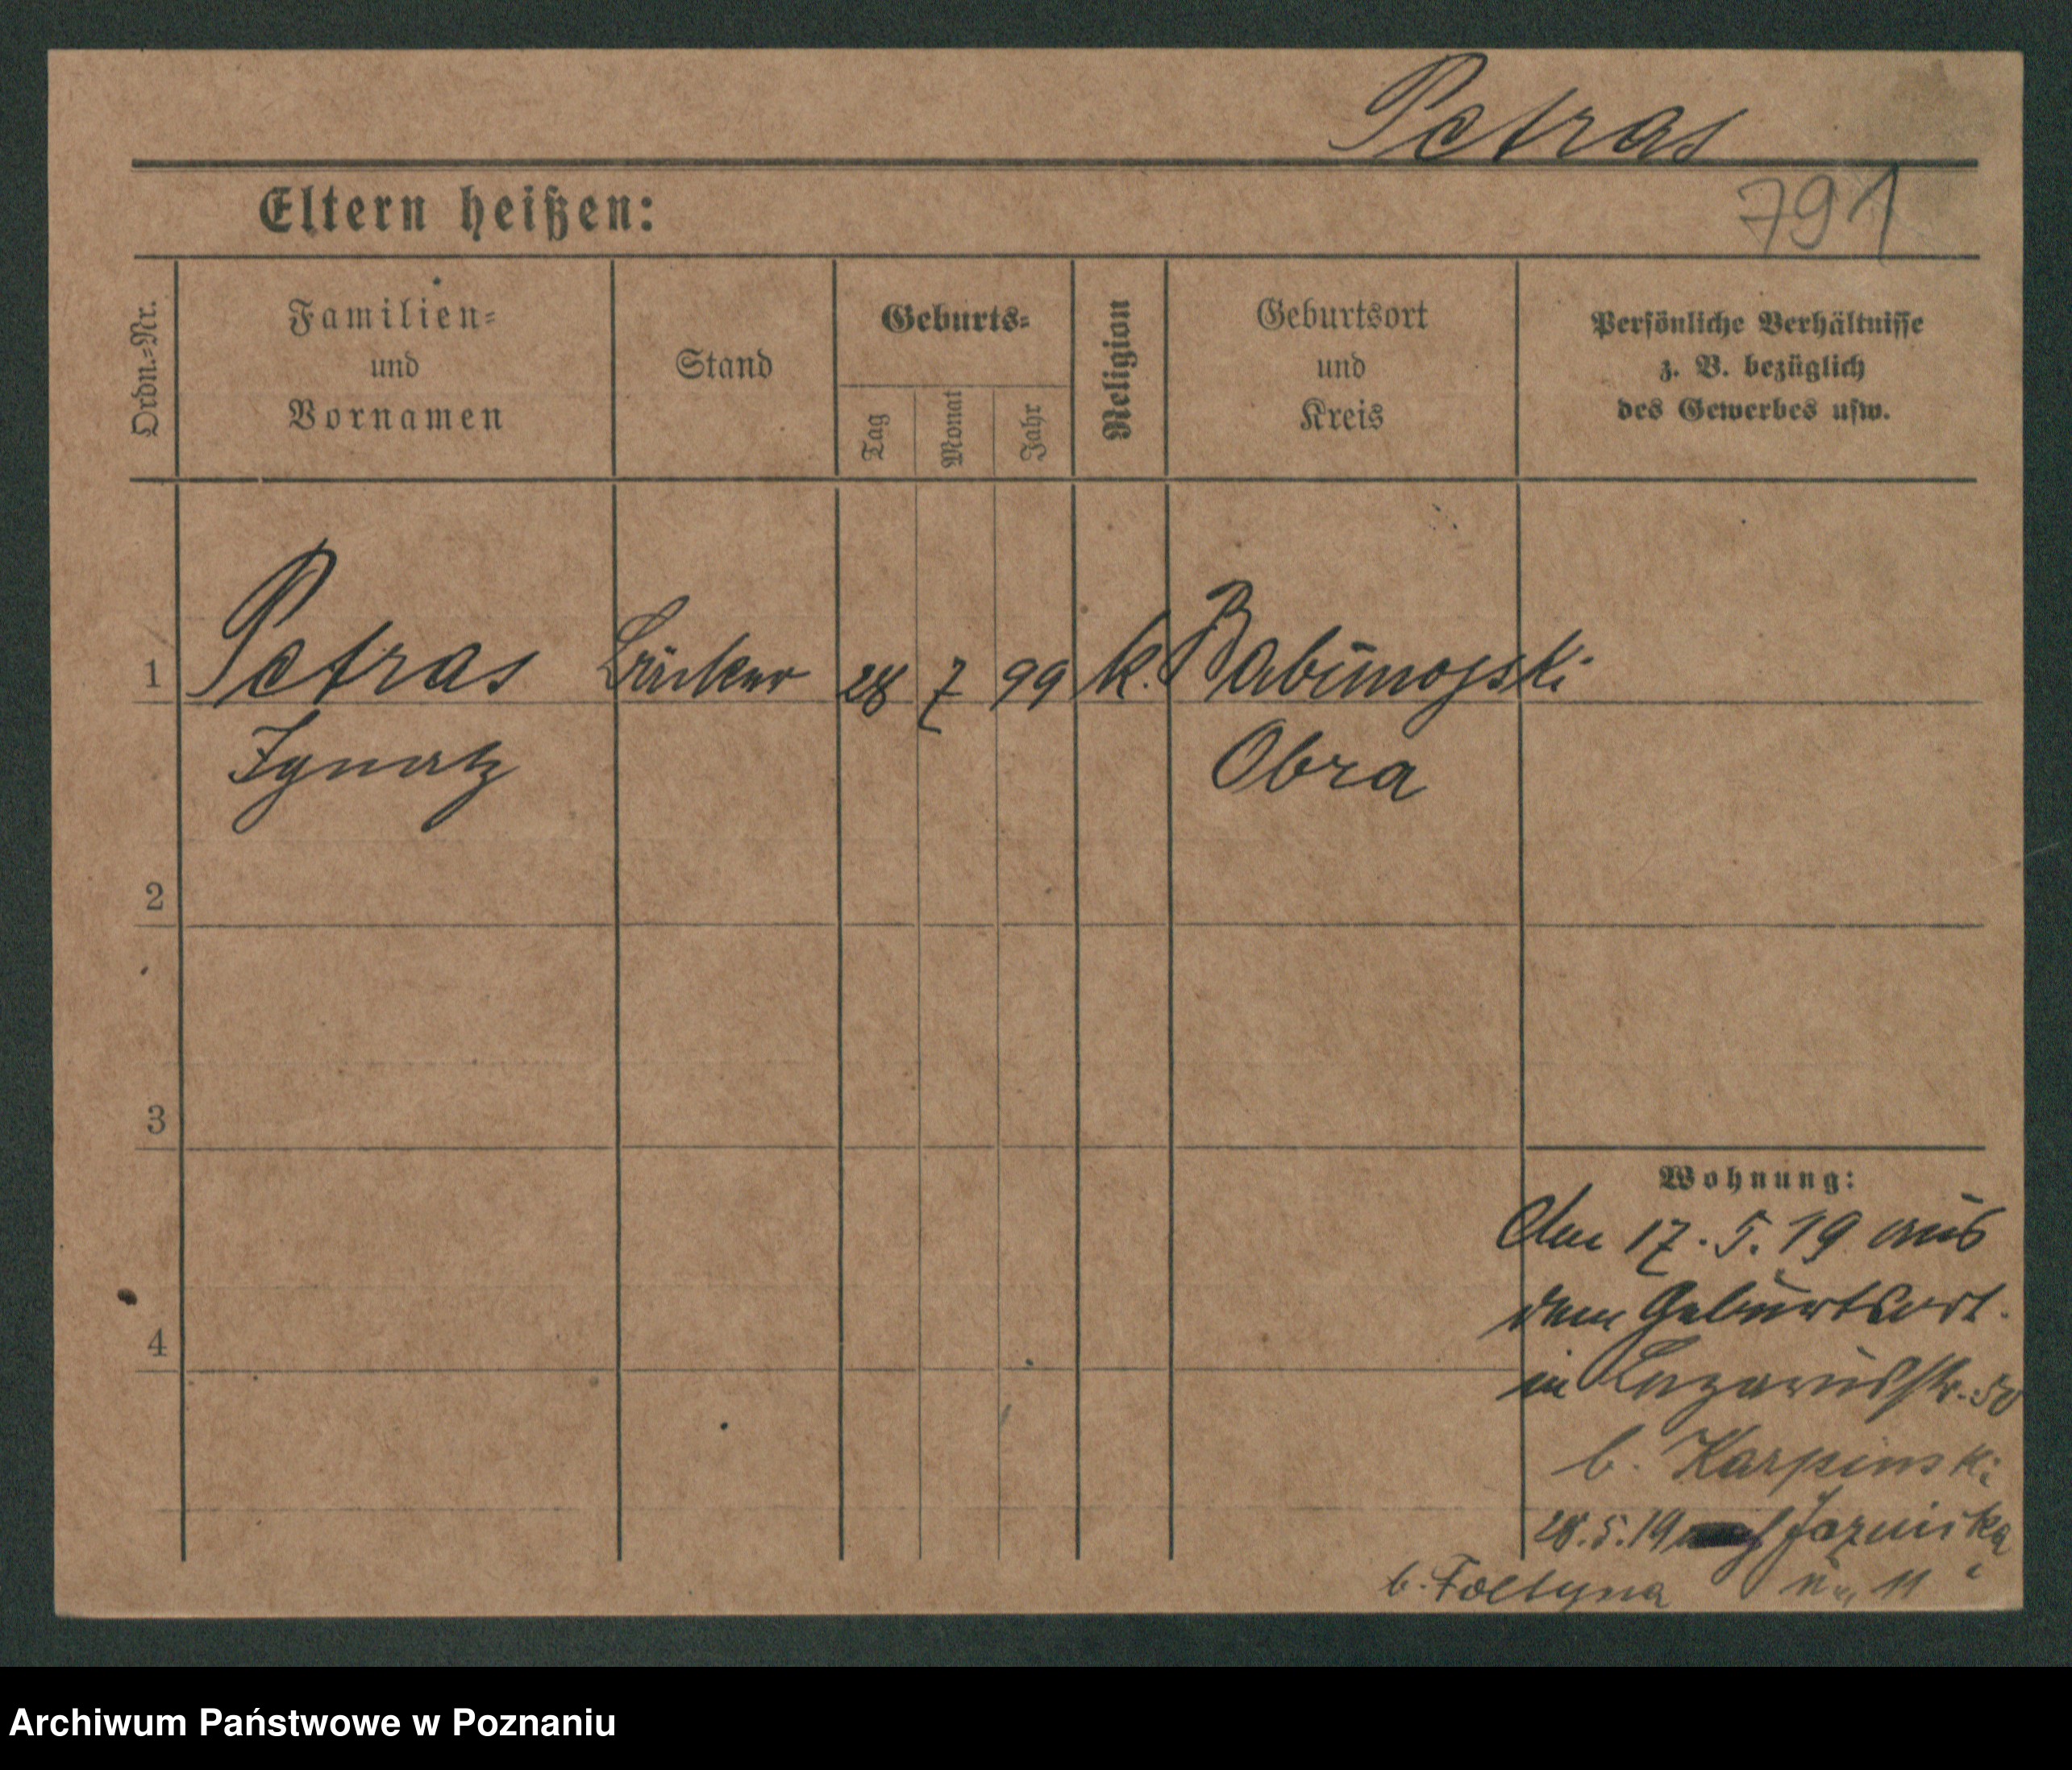 Petras
791
Eltern heißen:
Ordn.-Nr.
Familien-
und
Vornamen
Stand
Geburts-
Tag
Monat
Jahr
Religion
Geburtsort
und
Kreis
Persönliche Verhältnisse
z. B. bezüglich
des Gewerbes usw.
1 Petras Bäcker 28 7 99 k. Babimojski
Ignatz Obra
2
3
4
Wohnung:
den 17. 5. 19 aus
dem Geburtsort.
in Lazarusstr. 50
b. Karpinski
28. 5. 19
b. Foltyna 11
Archiwum Państwowe w Poznaniu